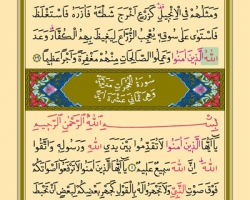 وَمَثَلُهُمْ فِي الْإِنْجِيلِ كَزَرْعٍ أَخْرَجَ شَطْأَهُ فَآزَرَهُ فَاسْتَغْلَظَ
فَاسْتَوَىٰ عَلَىٰ سُوقِهِ يُعْجِبُ الزُّرَّاعَ لِيَغِيظَ بِهِمُ الْكُفَّارَ وَعَدَ
اللَّهُ الَّذِينَ آمَنُوا وَعَمِلُوا الصَّالِحَاتِ مِنْهُمْ مَغْفِرَةً وَأَجْرًا عَظِيمًا ٢٩
سورة الحجرات مدنية
وهي ثماني عشرة آية
بِسْمِ اللَّهِ الرَّحْمَٰنِ الرَّحِيمِ
يَا أَيُّهَا الَّذِينَ آمَنُوا لَا تُقَدِّمُوا بَيْنَ يَدَيِ اللَّهِ وَرَسُولِهِ وَاتَّقُوا
اللَّهَ إِنَّ اللَّهَ سَمِيعٌ عَلِيمٌ ١ يَا أَيُّهَا الَّذِينَ آمَنُوا لَا تَرْفَعُوا أَصْوَاتَكُمْ
فَوْقَ صَوْتِ النَّبِيِّ وَلَا تَجْهَرُوا لَهُ بِالْقَوْلِ كَجَهْرِ بَعْضِكُمْ لِبَعْضٍ أَنْ تَحْبَطَ